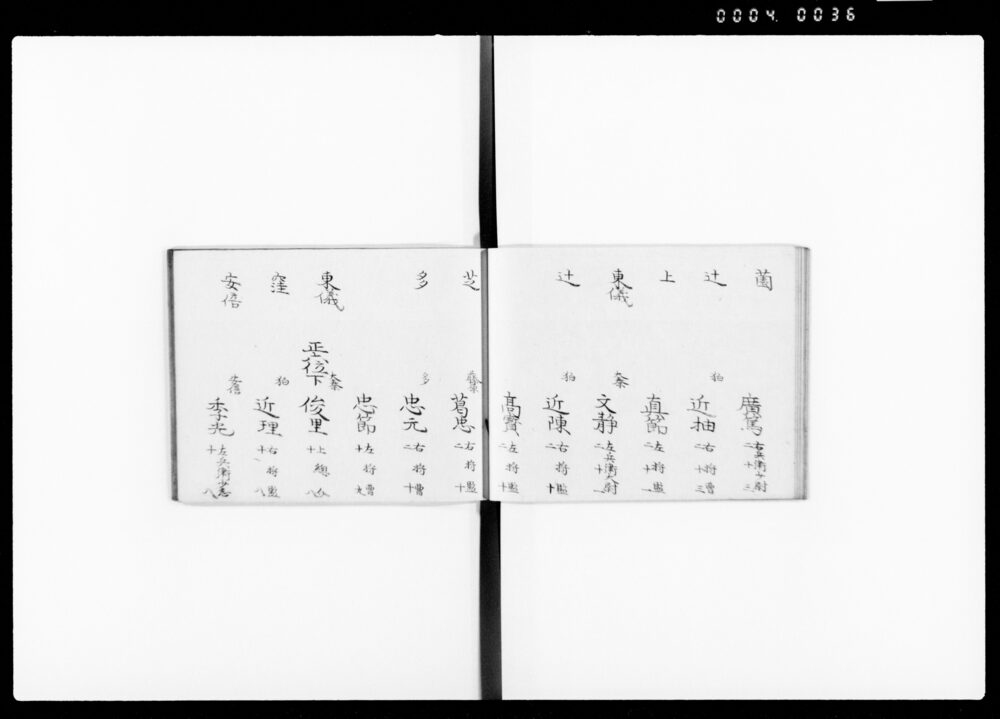 0004 0036
薗 廣篤 右兵衛少尉 二十三
辻 狛 近抽 右将曹 二十三
上 真節 左将監 二十一
東儀 太秦 文静 左兵衛大尉 二十一
辻 狛 近陳 将監 二十
高寶 左将監 二十
芝 藤原 葛忠 右将監 二十
多 多 忠元 右将曹 二十
忠節 左将曹 十九
東儀 太秦 正六位下 俊里 上総介 十八
窪 狛 近理 右将監 十八
安倍 安倍 季光 左兵衛少志 十八